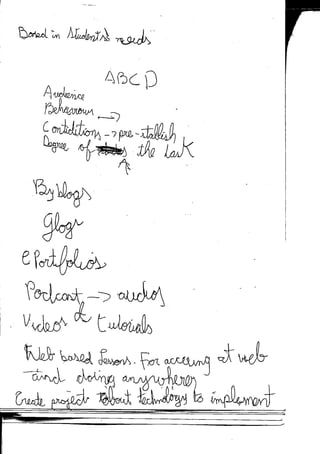 Based in Students needs
ABCD
Audience
Behaviour →
Contidition → pre-stablish
Degree of the task
By blogs
Glogs
e Portfolios
Podcast → audios
Videos & tutorials
Web based lessons. For accesing at web
and doing anywhere
Create project about technology to implement